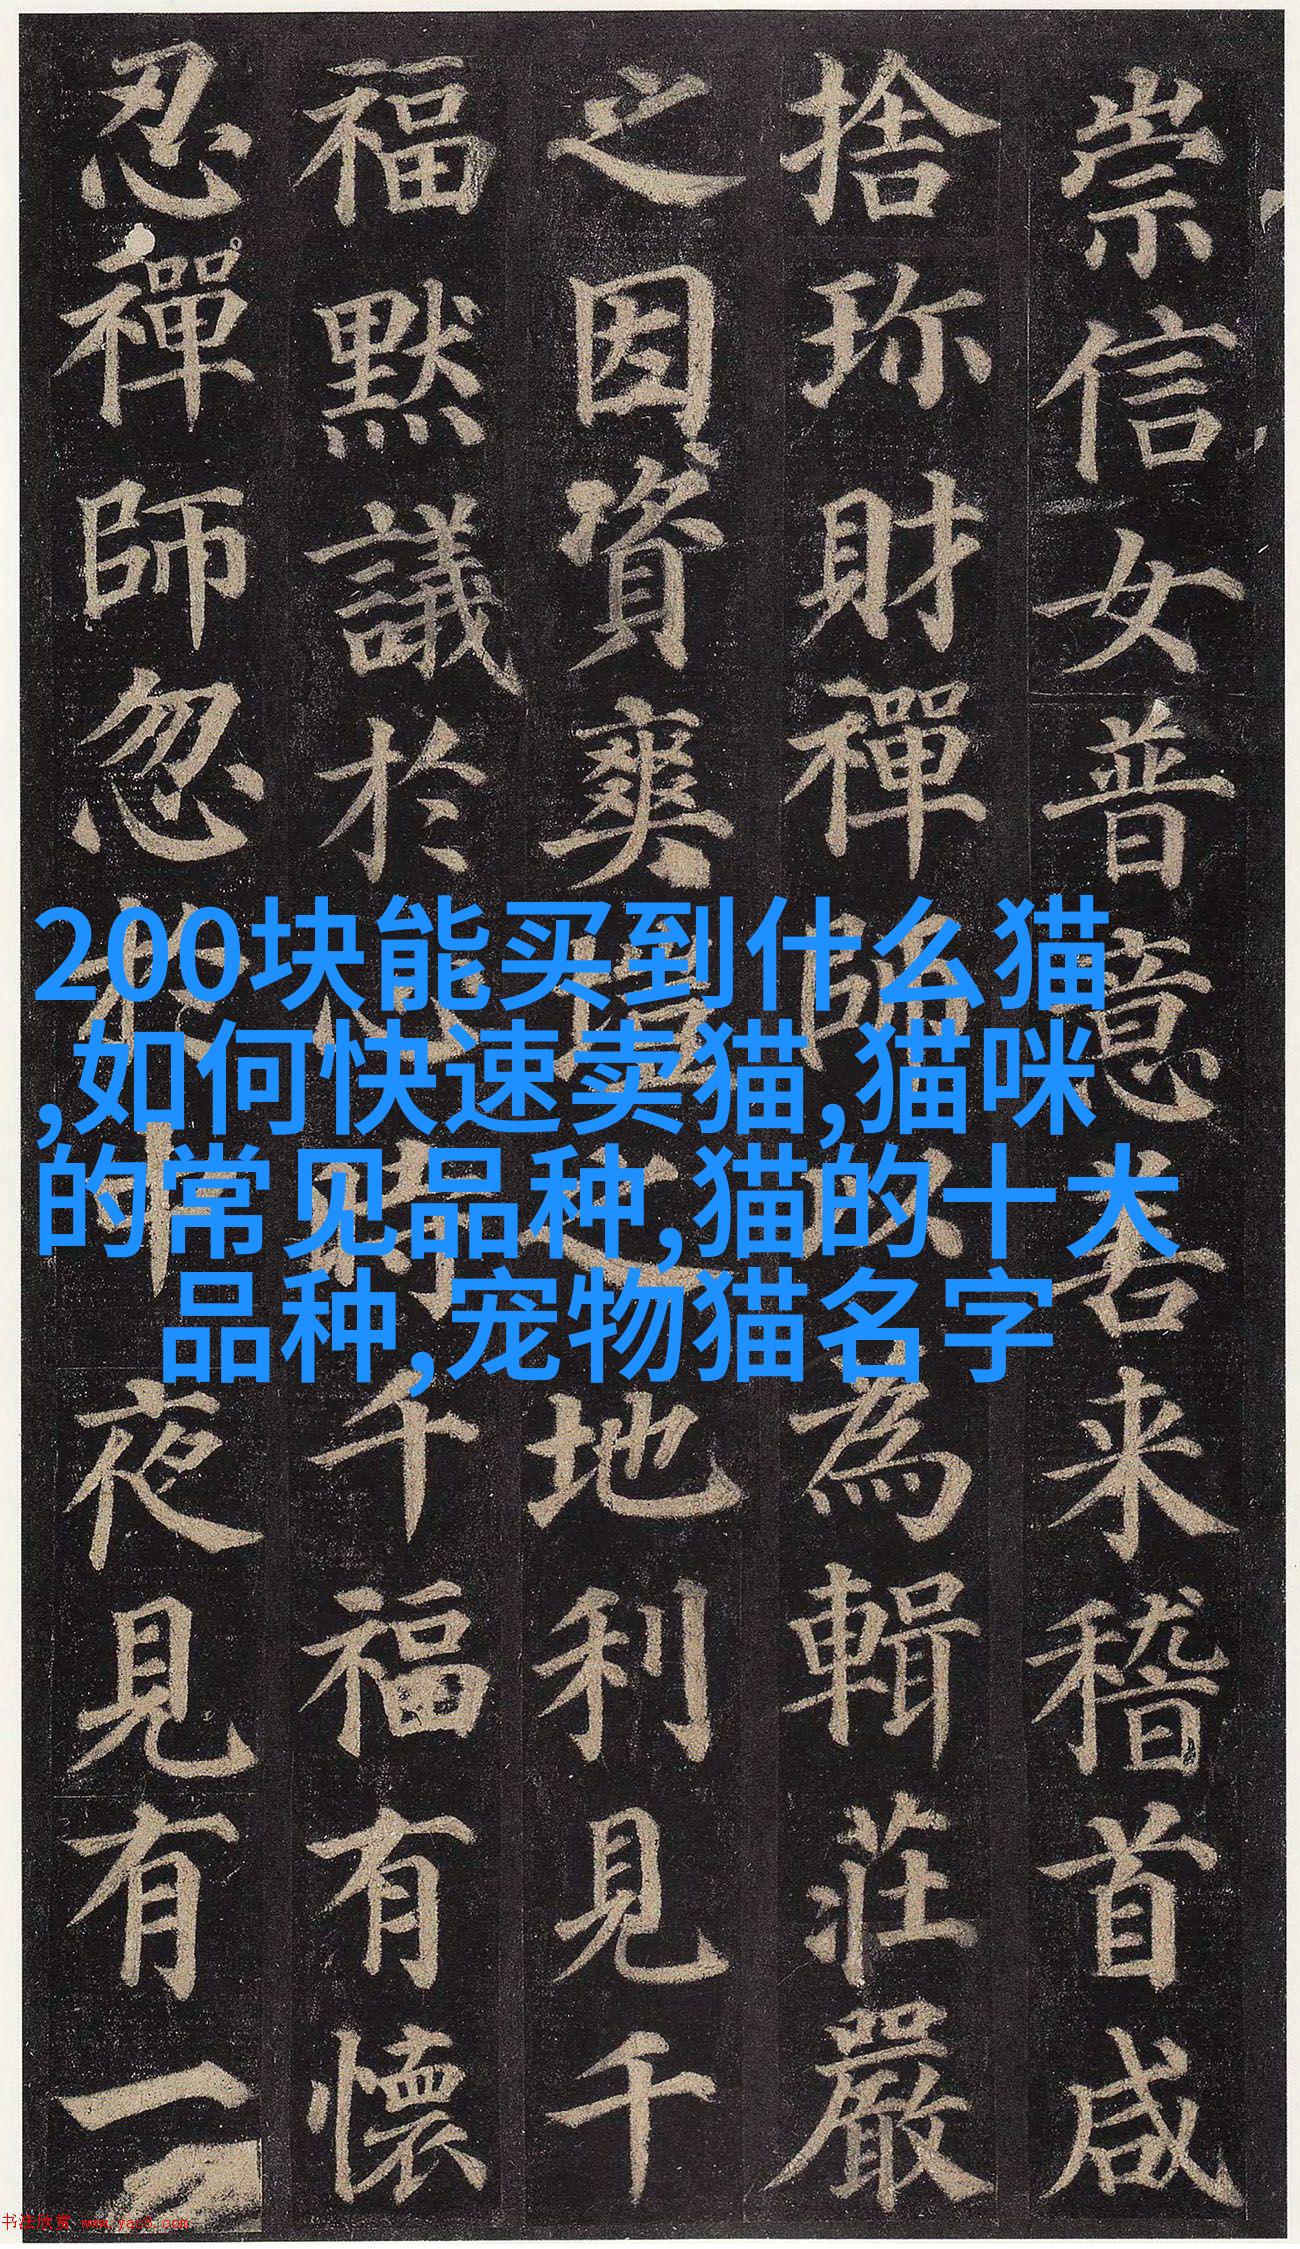 崇信女普意善来稽首咸
捨珎財禪師以為輯莊嚴
之因資爽塏之地利見千
福默議於心時千福有懷
忍禪師忽於中夜見有一
200块能买到什么猫
,如何快速卖猫,猫咪
的常见品种,猫的十大
品种,宠物猫名字
书法欣赏 www.yac8.com